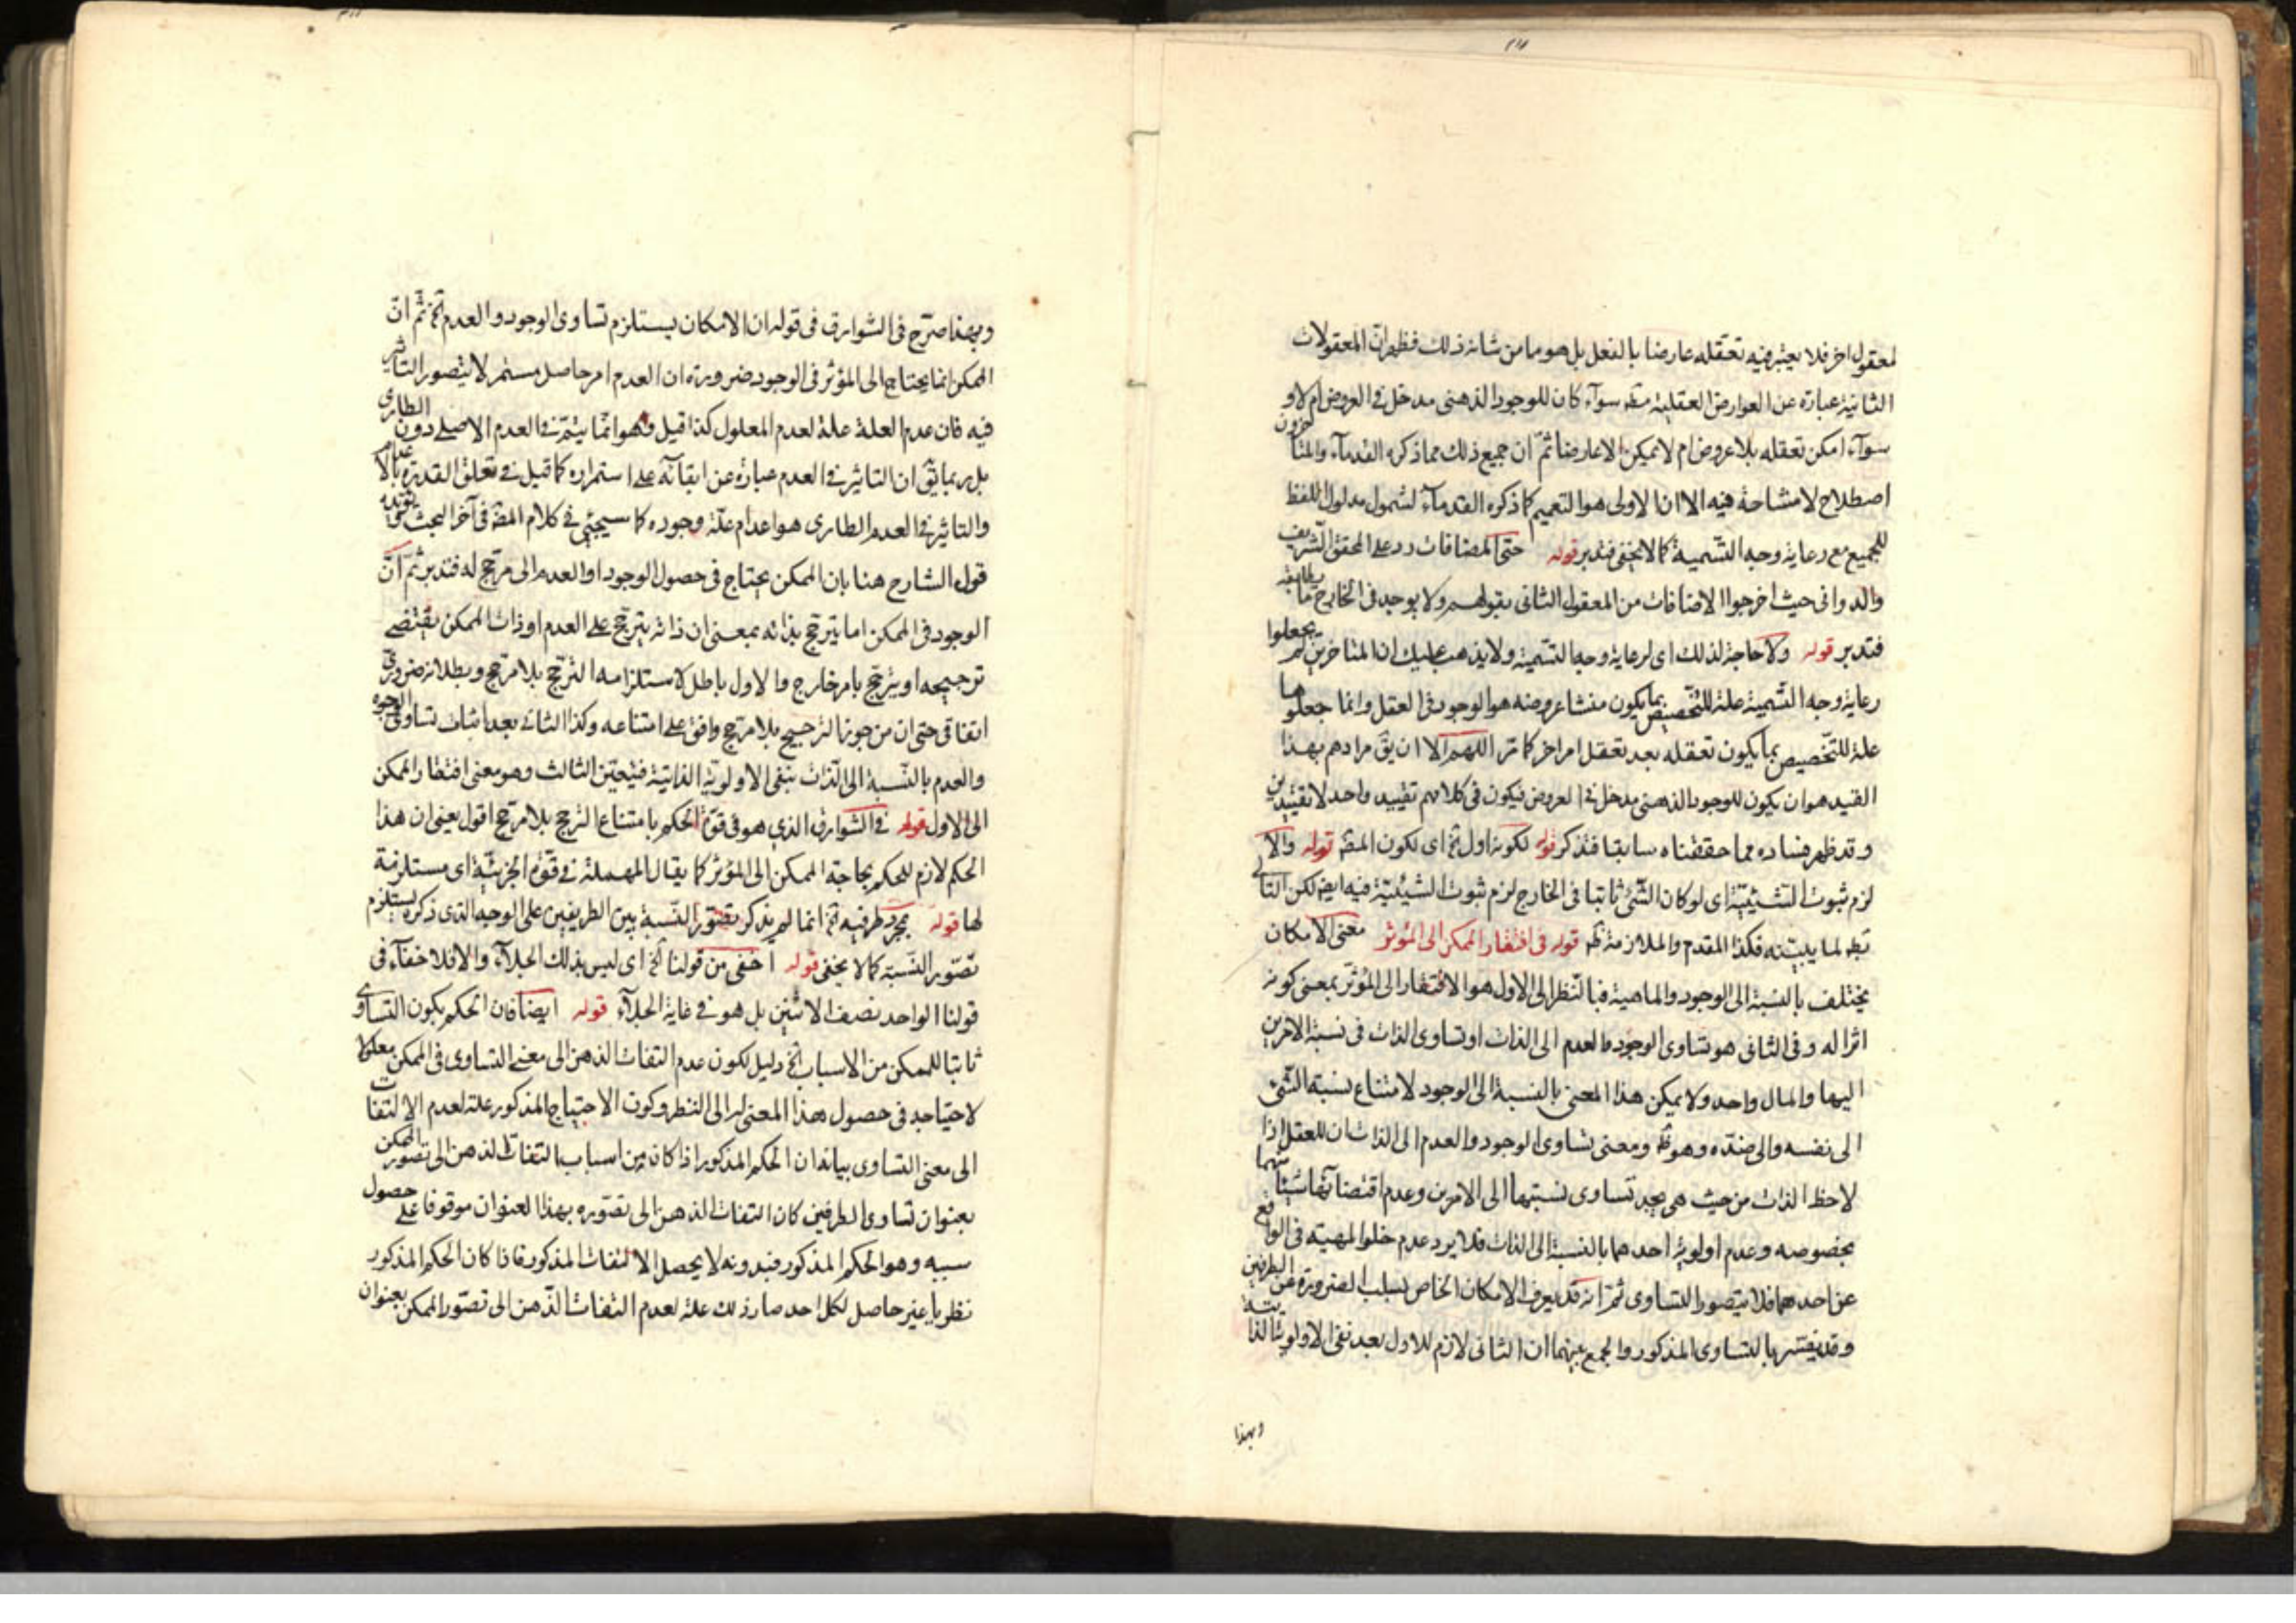 لمعقول اخر فلا يعتبر فيه تعقله عارضا بالفعل بل هو ما من شانه ذلك فظهر ان المعقولات
الثانية عبارة عن العوارض العقلية مطـ سوآء كان للوجود الذهنى مدخل فى العروض ام لا و
سوآء امكن تعقله بلا عروض ام لا يمكن الا عارضا ثمّ ان جميع ذلك مما ذكره القدمآء والمتأخرون
اصطلاح لا مشاحة فيه الا ان الاولى هو التعميم كما ذكره القدمآء لشمول مدلول اللفظ
للجميع مع رعاية وجه التّسمية كما لا يخفى فتدبر قوله حتى المضافات رد على المحقق الشّريف
والدوانى حيث اخرجوا الاضافات من المعقول الثانى بقولهم ولا يوجد فى الخارج ما يطابقه
فتدبر قوله ولا حاجة لذلك اى لرعاية وجه التّسمية ولا يذهب عليك ان المتاخرين لم يجعلوا
رعاية وجه التّسمية علة للتّخصيص بما يكون منشا عروضه هو الوجود فى العقل وانما جعلوها
علة للتّخصيص بما يكون تعقله بعد تعقل امر اخر كما مر اللهم الا ان يقـ مرادهم بهذا
القيد هو ان يكون للوجود الذهنى مدخل فى العروض فيكون فى كلامهم تقييد واحد لا تقييدين
وقد ظهر فساده مما حققناه سابقا فتذكر قوله لكونه اول الخ اى لكون المصـ قوله والا
لزم ثبوت الشّيئيّة اى لو كان الشّئ ثابتا فى الخارج لزم ثبوت الشيئيّة فيه ايضـ لكن التالى
بطـ لما بيّنه فكذا المقدم والملازمة ظـ قوله فى افتقار الممكن الى المؤثر معنى الامكان
يختلف بالنسبة الى الوجود والماهية فبالنّظر الى الاول هو الافتقار الى المؤثّر بمعنى كونه
اثرا له وفى الثانى هو تساوى الوجود والعدم الى الذات او تساوى الذات فى نسبة الامرين
اليها والمال واحد ولا يمكن هذا المعنى بالنسبة الى الوجود لامتناع نسبة الشّئ
الى نفسه والى ضدّه وهو ظـ ومعنى تساوى الوجود والعدم الى الذات ان للعقل اذا
لاحظ الذات من حيث هى يجد تساوى نسبتها الى الامرين وعدم اقتضائها شيئا منهما
بخصوصه وعدم اولوية احدهما بالنسبة الى الذات فلا يرد عدم خلو المهيّة فى الواقع
عن احدهما فلا يتصور التساوى ثمّ انه قد يعرف الامكان الخاص بسلب الضرورة عن الطرفين
وقد يفسّر بالتساوى المذكور والجمع بينهما ان الثانى لازم للاول بعد نفى الاولوية الذاتية
وبهذا
وبهذا صرّح فى الشوارق فى قوله ان الامكان يستلزم تساوى الوجود والعدم الخ ثمّ انّ
الممكن انما يحتاج الى المؤثر فى الوجود ضرورة ان العدم امر حاصل مستمر لا يتصور التأثير
فيه فان عدم العلة علة لعدم المعلول كذا قيل وهو انّما يتمّ فى العدم الاصلى دون الطارى
بل ربما يقـ ان التاثير فى العدم عبارة عن ابقائه على استمراره كما قيل فى تعلق القدرة بالاعدام
والتاثير فى العدم الطارى هو اعدام علّة وجوده كما سيجئ فى كلام المصـ فى آخر البحث ويؤيده
قول الشارح هنا بان الممكن يحتاج فى حصول الوجود او العدم الى مرجّح له فتدبر ثمّ انّ
الوجود فى الممكن اما يترجّح بذاته بمعنى ان ذاته يترجّح على العدم او ذات الممكن يقتضى
ترجيحه او يترجّح بامر خارج والاول باطل لاستلزامه الترجّح بلا مرجّح وبطلانه ضرورى
اتفاقى حتى ان من جوز الترجيح بلا مرجّح وافق على امتناعه وكذا الثانى بعد اثبات تساوى الوجود
والعدم بالنّسبة الى الذّات بنفى الاولويّة الذاتيّة فيتعيّن الثالث وهو معنى افتقار الممكن
الى الاول قوله فى الشوارق الذى هو فى قوّة الحكم بامتناع الترجّح بلا مرجّح اقول يعنى ان هذا
الحكم لازم للحكم بحاجة الممكن الى المؤثر كما يقال المهملة فى قوّة الجزئيّة اى مستلزمة
لها قوله بمجرّد طرفيه الخ انما لم يذكر تصوّر النّسبة بين الطرفين على الوجه الذى ذكره يستلزم
تصّور النّسبة كما لا يخفى قوله اخفى من قولنا الخ اى ليس بذلك الجلآء والا فلا خفآء فى
قولنا الواحد نصف الاثنين بل هو فى غاية الجلآء قوله ايضا فان الحكم بكون التساوى
ثابتا للممكن من الاسباب الخ دليل لكون عدم التفات الذهن الى معنى التساوى فى الممكن معلولا
لاحتياجه فى حصول هذا المعنى له الى النظر وكون الاحتياج المذكور علة لعدم الالتفات
الى معنى التساوى بيانه ان الحكم المذكور اذا كان من اسباب التفات الذهن الى تصور الممكن
بعنوان تساوى الطرفين كان التفات الذهن الى تصوّره بهذا العنوان موقوفا على حصول
سببه وهو الحكم المذكور فبدونه لا يحصل الالتفات المذكور فاذا كان الحكم المذكور
نظريا غير حاصل لكل احد صار ذلك علة لعدم التفات الذّهن الى تصوّر الممكن بعنوان